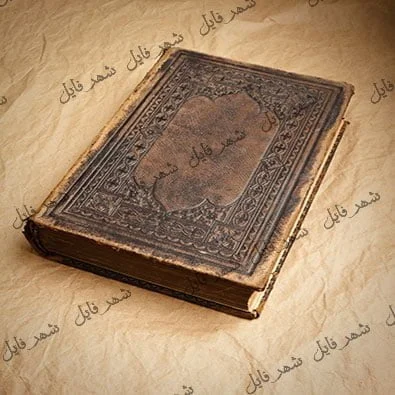 شهر فایل
شهر فایل
شهر فایل
شهر فایل
شهر فایل
شهر فایل
شهر فایل
شهر فایل
شهر فایل
شهر فایل
شهر فایل
شهر فایل
شهر فایل